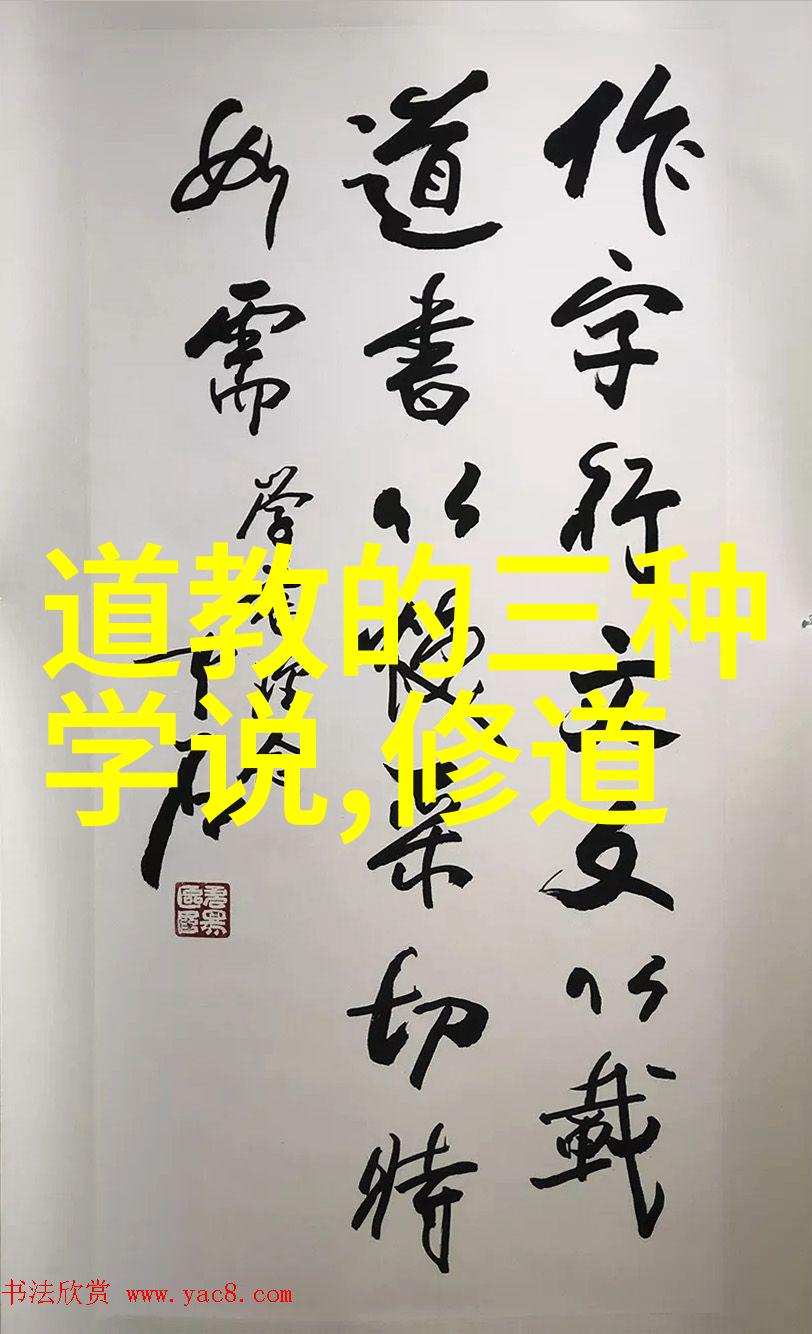 作字行文文以載
道書以煥采切時
如需
道教的三种
学说,修道
书法欣赏 www.yac8.com